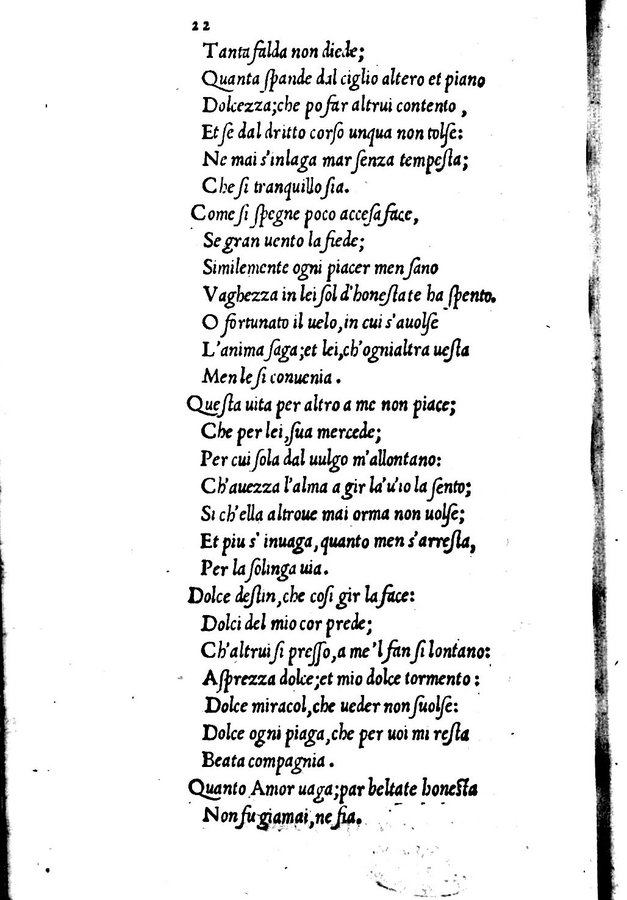 22
Tanta salda non diede;
Quanta ſpande dal ciglio altero et piano
Dolcezza; che po far altrui contento,
Et ſe dal dritto corſo unqua non tolſe:
Ne mai s'inlaga mar ſenza tempeſta;
Che ſi tranquillo ſia.
Come ſi ſpegne poco acceſa face,
Se gran uento la fiede;
Similemente ogni piacer men ſano
Vaghezza in lei ſol d'honeſtate ha ſpento.
O fortunato il uelo, in cui s'auolſe
L'anima ſaga; et lei, ch'ognialtra ueſta
Men le ſi conuenia.
Queſta uita per altro a me non piace;
Che per lei, ſua mercede;
Per cui ſola dal uulgo m'allontano:
Ch'auezza l'alma a gir la'u'io la ſento;
Si ch'ella altroue mai orma non uolſe;
Et piu s'inuaga, quanto men s'arreſta,
Per la ſolinga uia.
Dolce deſtin, che coſi gir la face:
Dolci del mio cor prede;
Ch'altrui ſi preſſo, a me'l fan ſi lontano:
Aſprezza dolce; et mio dolce tormento:
Dolce miracol, che ueder non ſuolſe:
Dolce ogni piaga, che per uoi mi reſta
Beata compagnia.
Quanto Amor uaga; par beltate honeſta
Non fu giamai, ne fia.